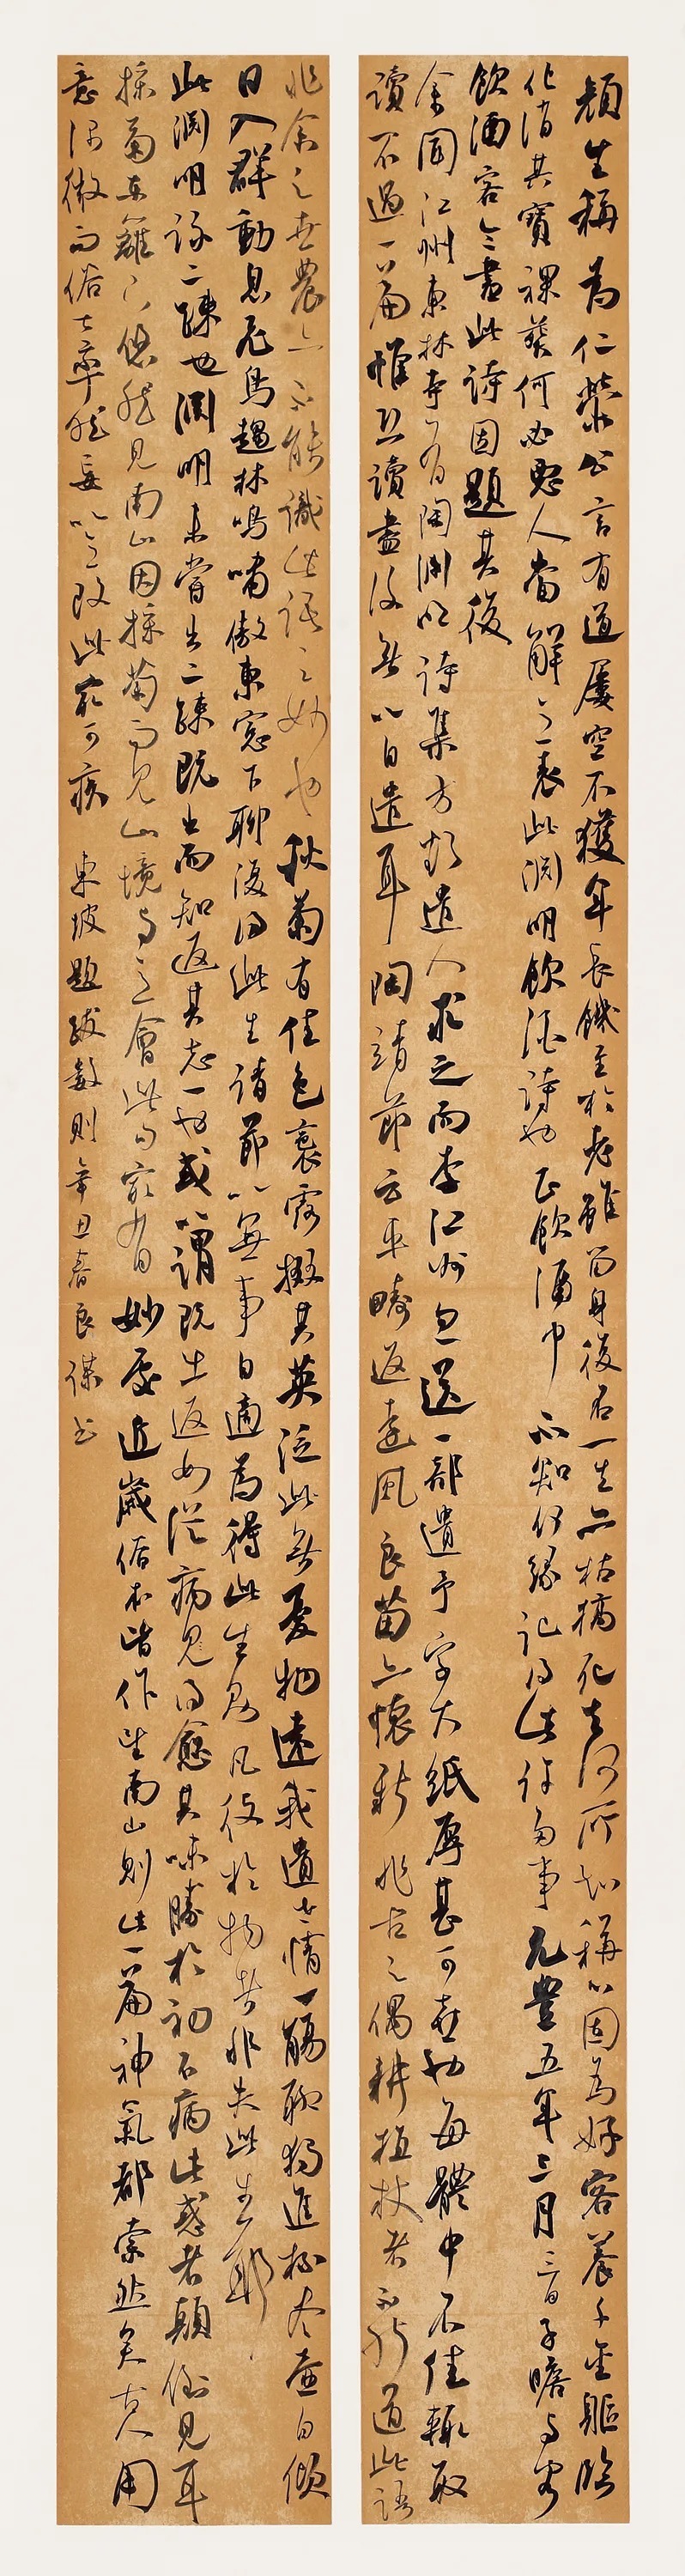 顏生稱為仁榮公言有道屢空不獲年長饑至於老雖留身後名一生亦枯槁死去何所知稱心固為好客養千金軀臨
化消其寶裸葬何必惡人當解意表此淵明飲酒詩也正飲酒中不知何緣記得此許多事元豐五年三月三日子瞻與客
飲酒客令書此詩因題其後
余聞江州東林寺有陶淵明詩集方欲遣人求之而李江州忽送一部遺予字大紙厚甚可喜也每體中不佳輒取
讀不過一篇惟恐讀盡後無以自遣耳 陶靖節云平疇返遠風良苗亦懷新非古之偶耕植杖者不能道此語
非余之世農亦不能識此語之妙也 秋菊有佳色裛露掇其英泛此無憂物遠我遺世情一觴聊獨進杯盡壺自傾
日入群動息飛鳥趨林鳴嘯傲東窗下聊復得此生靖節以無事自適為得此生則凡役於物者非失此生耶
此淵明詠二疎也淵明未嘗出二疎既出而知返其志一也或以謂既出返如從病得愈其味勝於初不病此惑者顛倒見耳
採菊東籬下悠然見南山因採菊而見山境與意會此句最有妙處近歲俗本皆作望南山則此一篇神氣都索然矣古人用
意深微而俗士率然妄以意改此最可疾 東坡題跋數則辛丑春良謀書